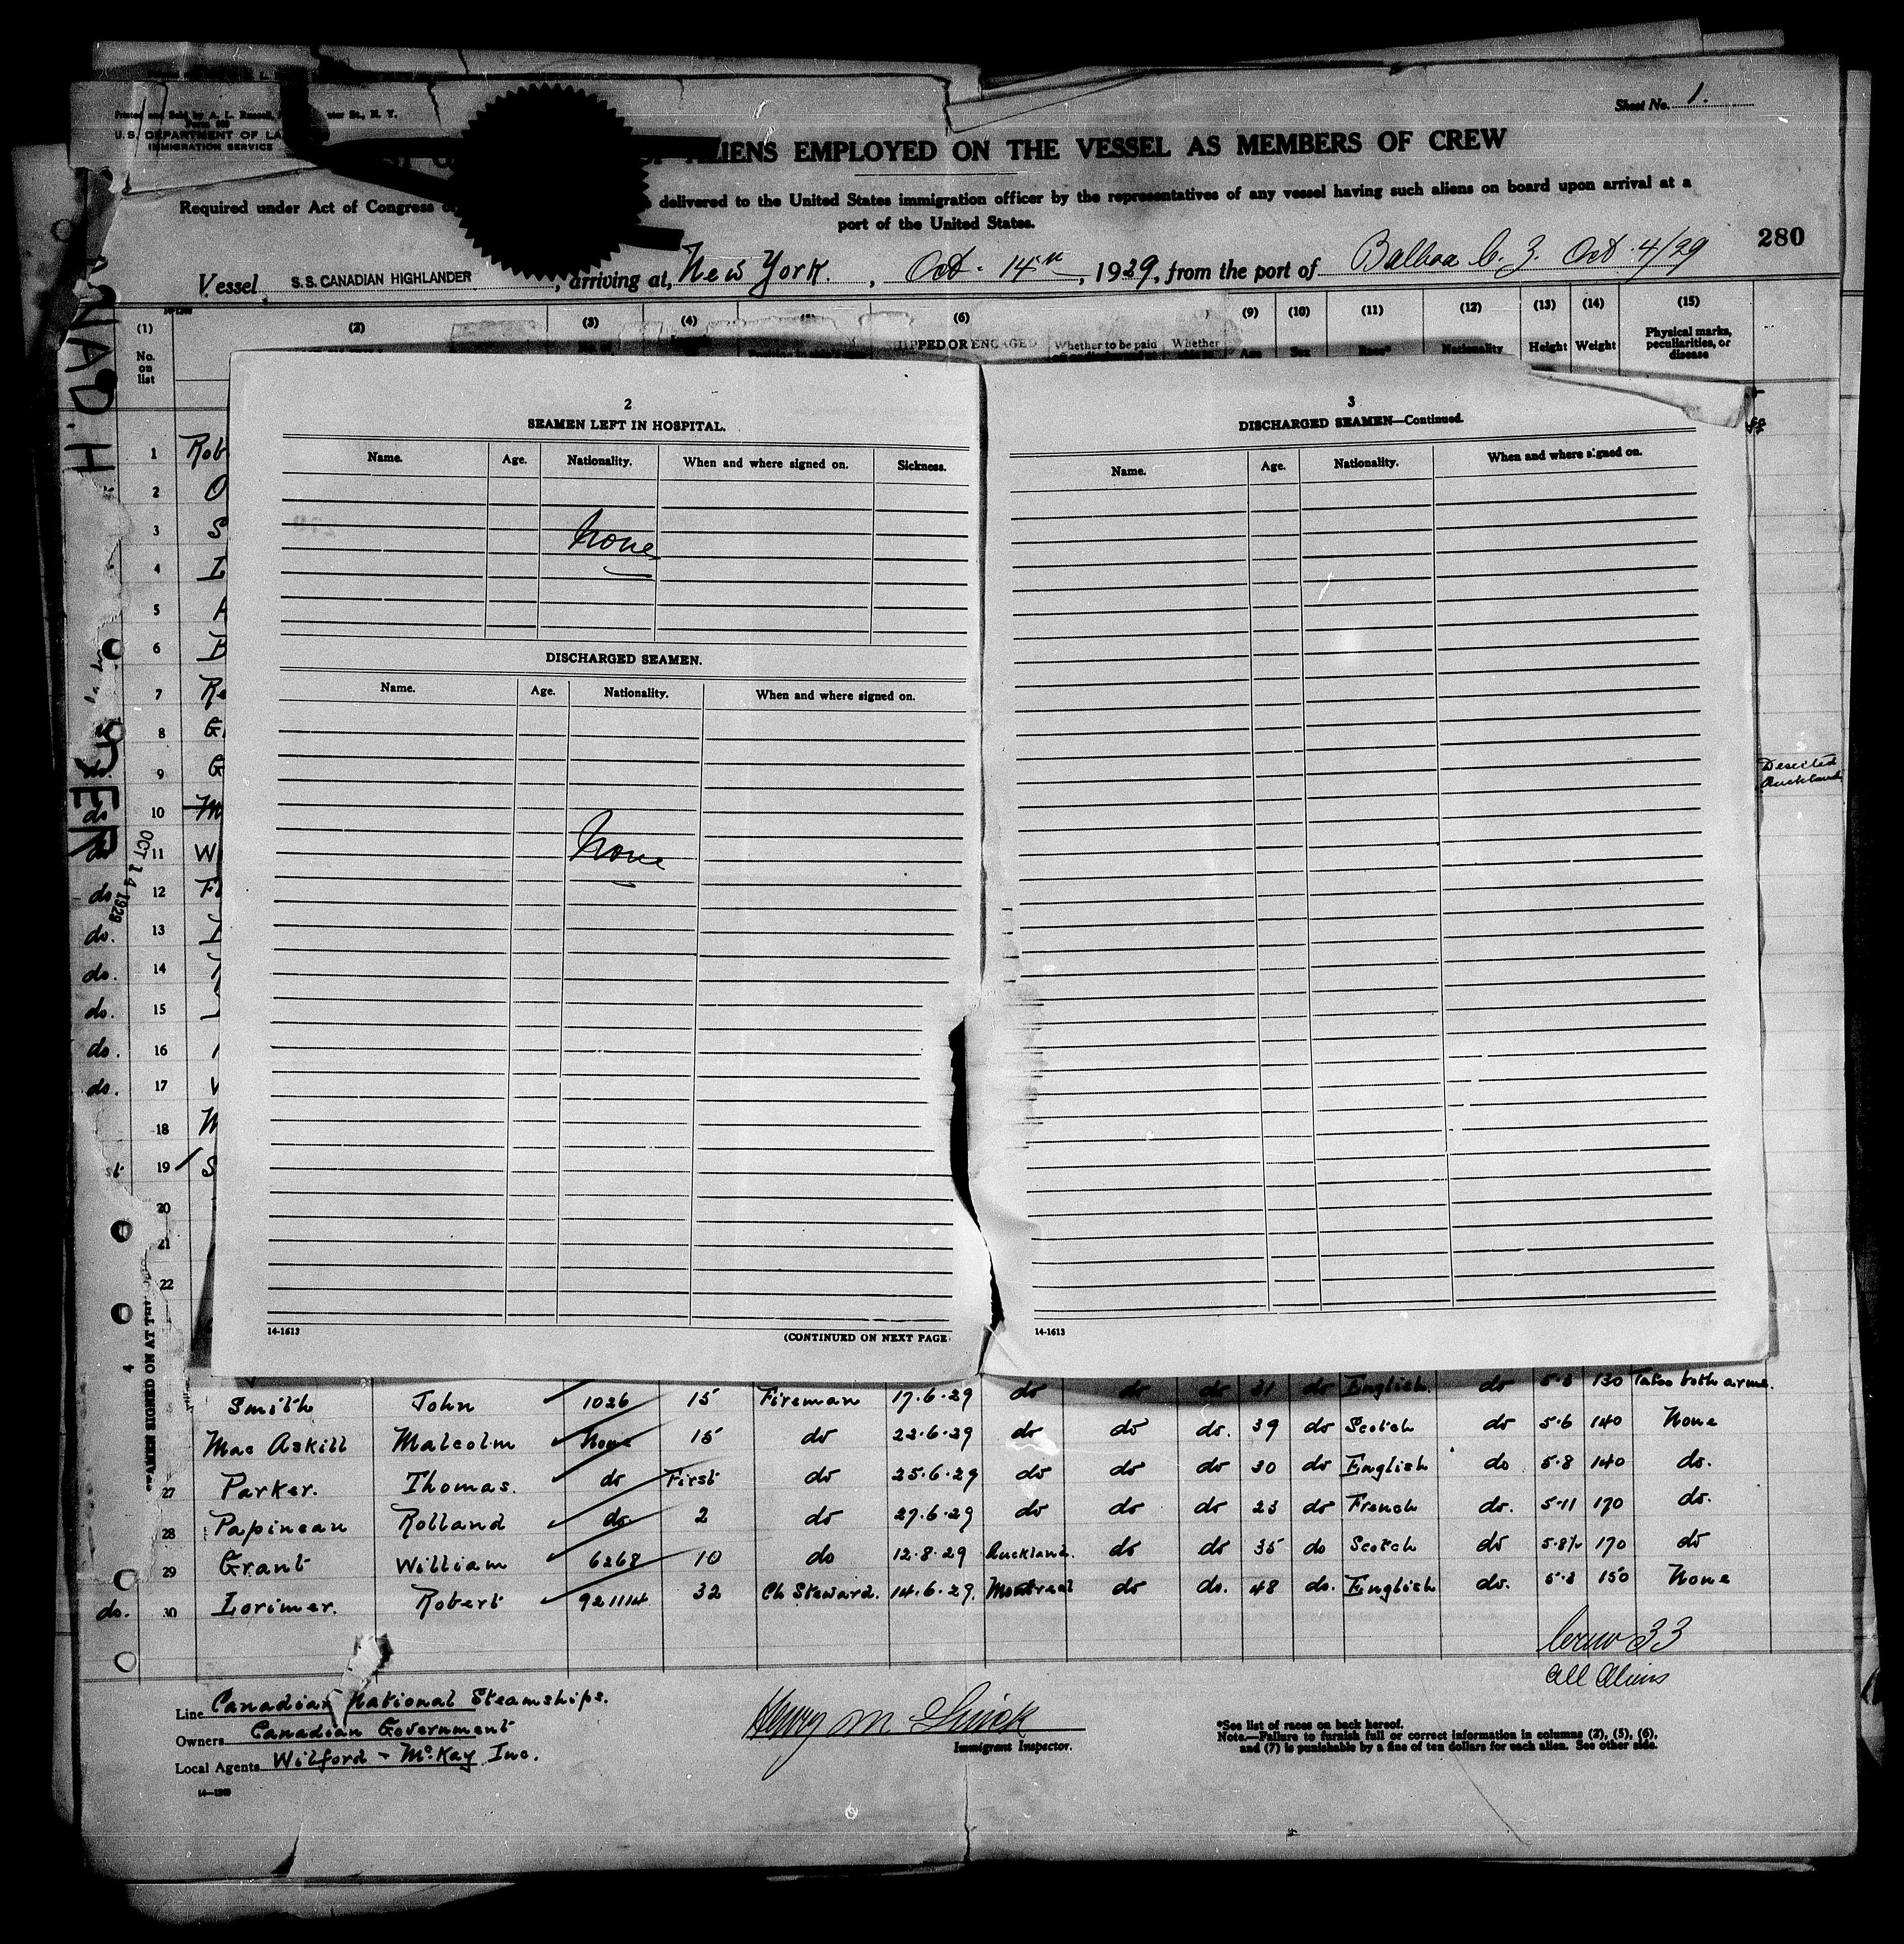 Sheet No. 1.
Printed and Sold by A. L. Russell, St., N. Y.
U. S. DEPARTMENT OF LA
IMMIGRATION SERVICE
ALIENS EMPLOYED ON THE VESSEL AS MEMBERS OF CREW
Required under Act of Congress delivered to the United States immigration officer by the representatives of any vessel having such aliens on board upon arrival at a
port of the United States.
280
Vessel S.S. CANADIAN HIGHLANDER, arriving at, New York., Oct. 14th, 1929, from the port of Balboa C. Z. Oct. 4/29
(1) (2) (3) (4) (6) (9) (10) (11) (12) (13) (14) (15)
No. on list
SHIPPED OR ENGAGED Whether to be paid Whether Age Sex Race* Nationality Height Weight Physical marks, peculiarities, or disease
2
SEAMEN LEFT IN HOSPITAL.
Name. Age. Nationality. When and where signed on. Sickness.
None
DISCHARGED SEAMEN.
Name. Age. Nationality. When and where signed on.
None
14-1613 (CONTINUED ON NEXT PAGE)
3
DISCHARGED SEAMEN—Continued.
Name. Age. Nationality. When and where signed on.
14-1613
1 Rob
2 O
3 S
4
5
6
7 Re
8 G
9 G
10 M
11 W
12 Fi
13
14
15
16
17
18 M
19 S
20
21
22
Deserted
Auckland
OCT 14 1929
Smith John 1026 15 Fireman 17.6.29 do do do 31 do English. do 5.8 130 Tatoo both arms.
Mac Askill Malcolm None 15 do 22.6.29 do do do. 39 do Scotch do 5.6 140 None
27 Parker. Thomas. do First do 25.6.29 do do do 30 do English do 5.8 140 do.
28 Papineau Rolland do. 2 do 27.6.29 do do do 23 do French do. 5.11 170 do.
29 Grant William 6268 10 do 12.8.29 Auckland. do do 35 do Scotch do 5.8½ 170 do
do. 30 Lorimer. Robert 921114 32 Ch Steward. 14.6.29. Montreal do do. 48 do. English do. 5.8 150 None
Crew 33
All Aliens
Line Canadian National Steamships.
Owners Canadian Government
Local Agents Wilford - McKay Inc.
Immigrant Inspector.
*See list of races on back hereof.
Note.—Failure to furnish full or correct information in columns (2), (5), (6),
and (7) is punishable by a fine of ten dollars for each alien. See other side.